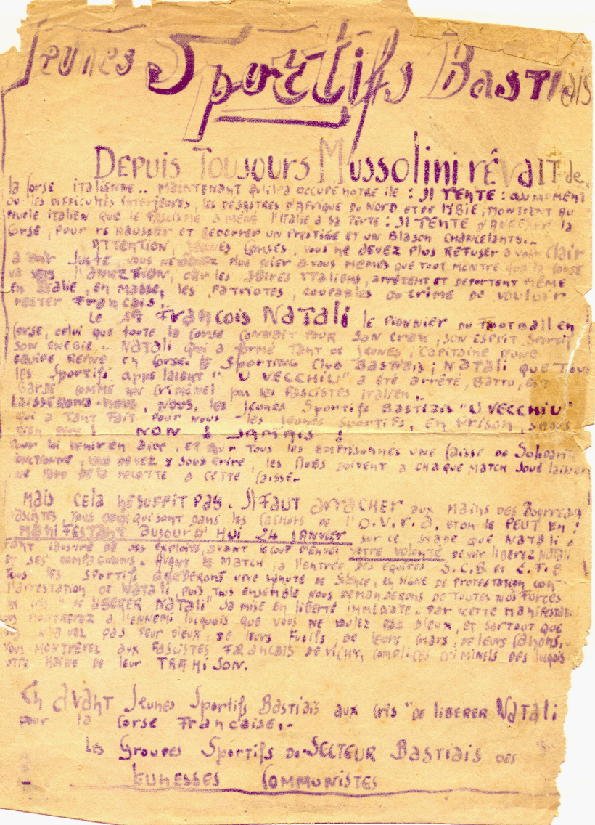 Jeunes Sportifs Bastiais
DEPUIS TOUJOURS Mussolini rêvait de
la Corse italienne.. maintenant qu'il a occupé notre ile : il tente : au moment
où les difficultés intérieures, les désastres d'Afrique du Nord et de
peuple italien que le fascisme a mené l'Italie à sa perte : il tente d' la
Corse pour rehausser et redorer un prestige et un blason chancelants..
ATTENTION, jeunes Corses, vous ne devez plus refuser à voir clair
à voir juste, vous à vous mêmes que tout montre que la Corse
va vers l'annexion, car les sbires italiens, arrêtent et déportent même
en Italie, en masse, les patriotes, coupables du crime de vouloir
rester Français.
Le François NATALI le pionnier du football en
Corse, celui que toute la Corse connait pour son cran, son esprit sportif
son énergie.. Natali qui a formé tant de jeunes, capitaine d'une
équipe reine en Corse, le Sporting Club Bastiais ; Natali que tous
les sportifs appelaient "U VECCHIU" a été arrêté, battu, est
gardé comme un criminel par les fascistes italiens.
Laisserons-nous, nous, les jeunes sportifs bastiais "U VECCHIU"
qui a tant fait pour nous les jeunes sportifs, en prison, sans
rien dire ! NON ! JAMAIS !
Pour lui venir en aide, et pour tous les emprisonnés une caisse de Solidari
fonctionne, vous devez y souscrire, les clubs doivent à chaque match joué laisser
une part de la recette à cette caisse.
Mais cela ne suffit pas. Il faut arracher aux mains des bourreaux
fascistes tous ceux qui sont dans les cachots de l'O.V.R.A. et on le PEUT EN :
MANIFESTANT AUJOURD'HUI 24 JANVIER sur ce stade que Natali a
tant de ses exploits, avant le coup d'envoi votre volonté de voir libérer Natali
et ses compagnons. Avant le match à l'entrée des équipes S.C.B et
Tous les sportifs garderons une minute de silence, en signe de protestation con
l'arrestation de Natali puis tous ensemble nous demanderons de toutes nos forces
"DE LIBERER NATALI" sa mise en liberté immédiate. Par cette manifestation
vous montrerez à l'ennemi que vous ne voulez pas d'eux, et surtout que
pas peur d'eux, de leurs fusils, de leurs chars, de leurs canons,
vous montrerez aux fascistes français de Vichy, complices criminels des
votre haine de leur TRAHISON.
En avant Jeunes Sportifs Bastiais aux cris "DE LIBERER NATALI
pour la Corse Française.-
Les Groupes Sportifs du SECTEUR BASTIAIS DES
JEUNESSES COMMUNISTES